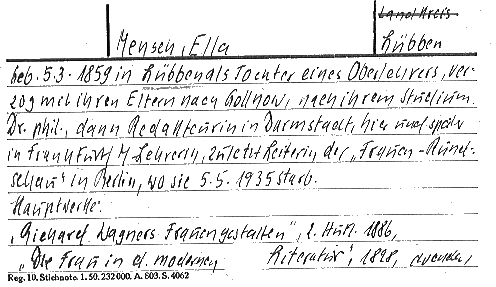 Landkreis
Mensch, Ella Lübben
Geb. 5.3.1859 in Lübben als Tochter eines Oberlehrers, ver-
zog mit ihren Eltern nach Gollnow, nach ihrem Studium
Dr. phil., dann Redakteurin in Darmstadt, hier und später
in Frankfurt/M Lehrerin, zuletzt Leiterin der „Frauen-Rund-
schau" in Berlin, wo sie 5.5.1935 starb.
Hauptwerke:
„Richard Wagners Frauengestalten", 2. Aufl. 1886,
„Die Frau in d. modernen Literatur", 1898,
Reg. 10. Stichnote. 1. 50. 232000. A. 803. S. 4062